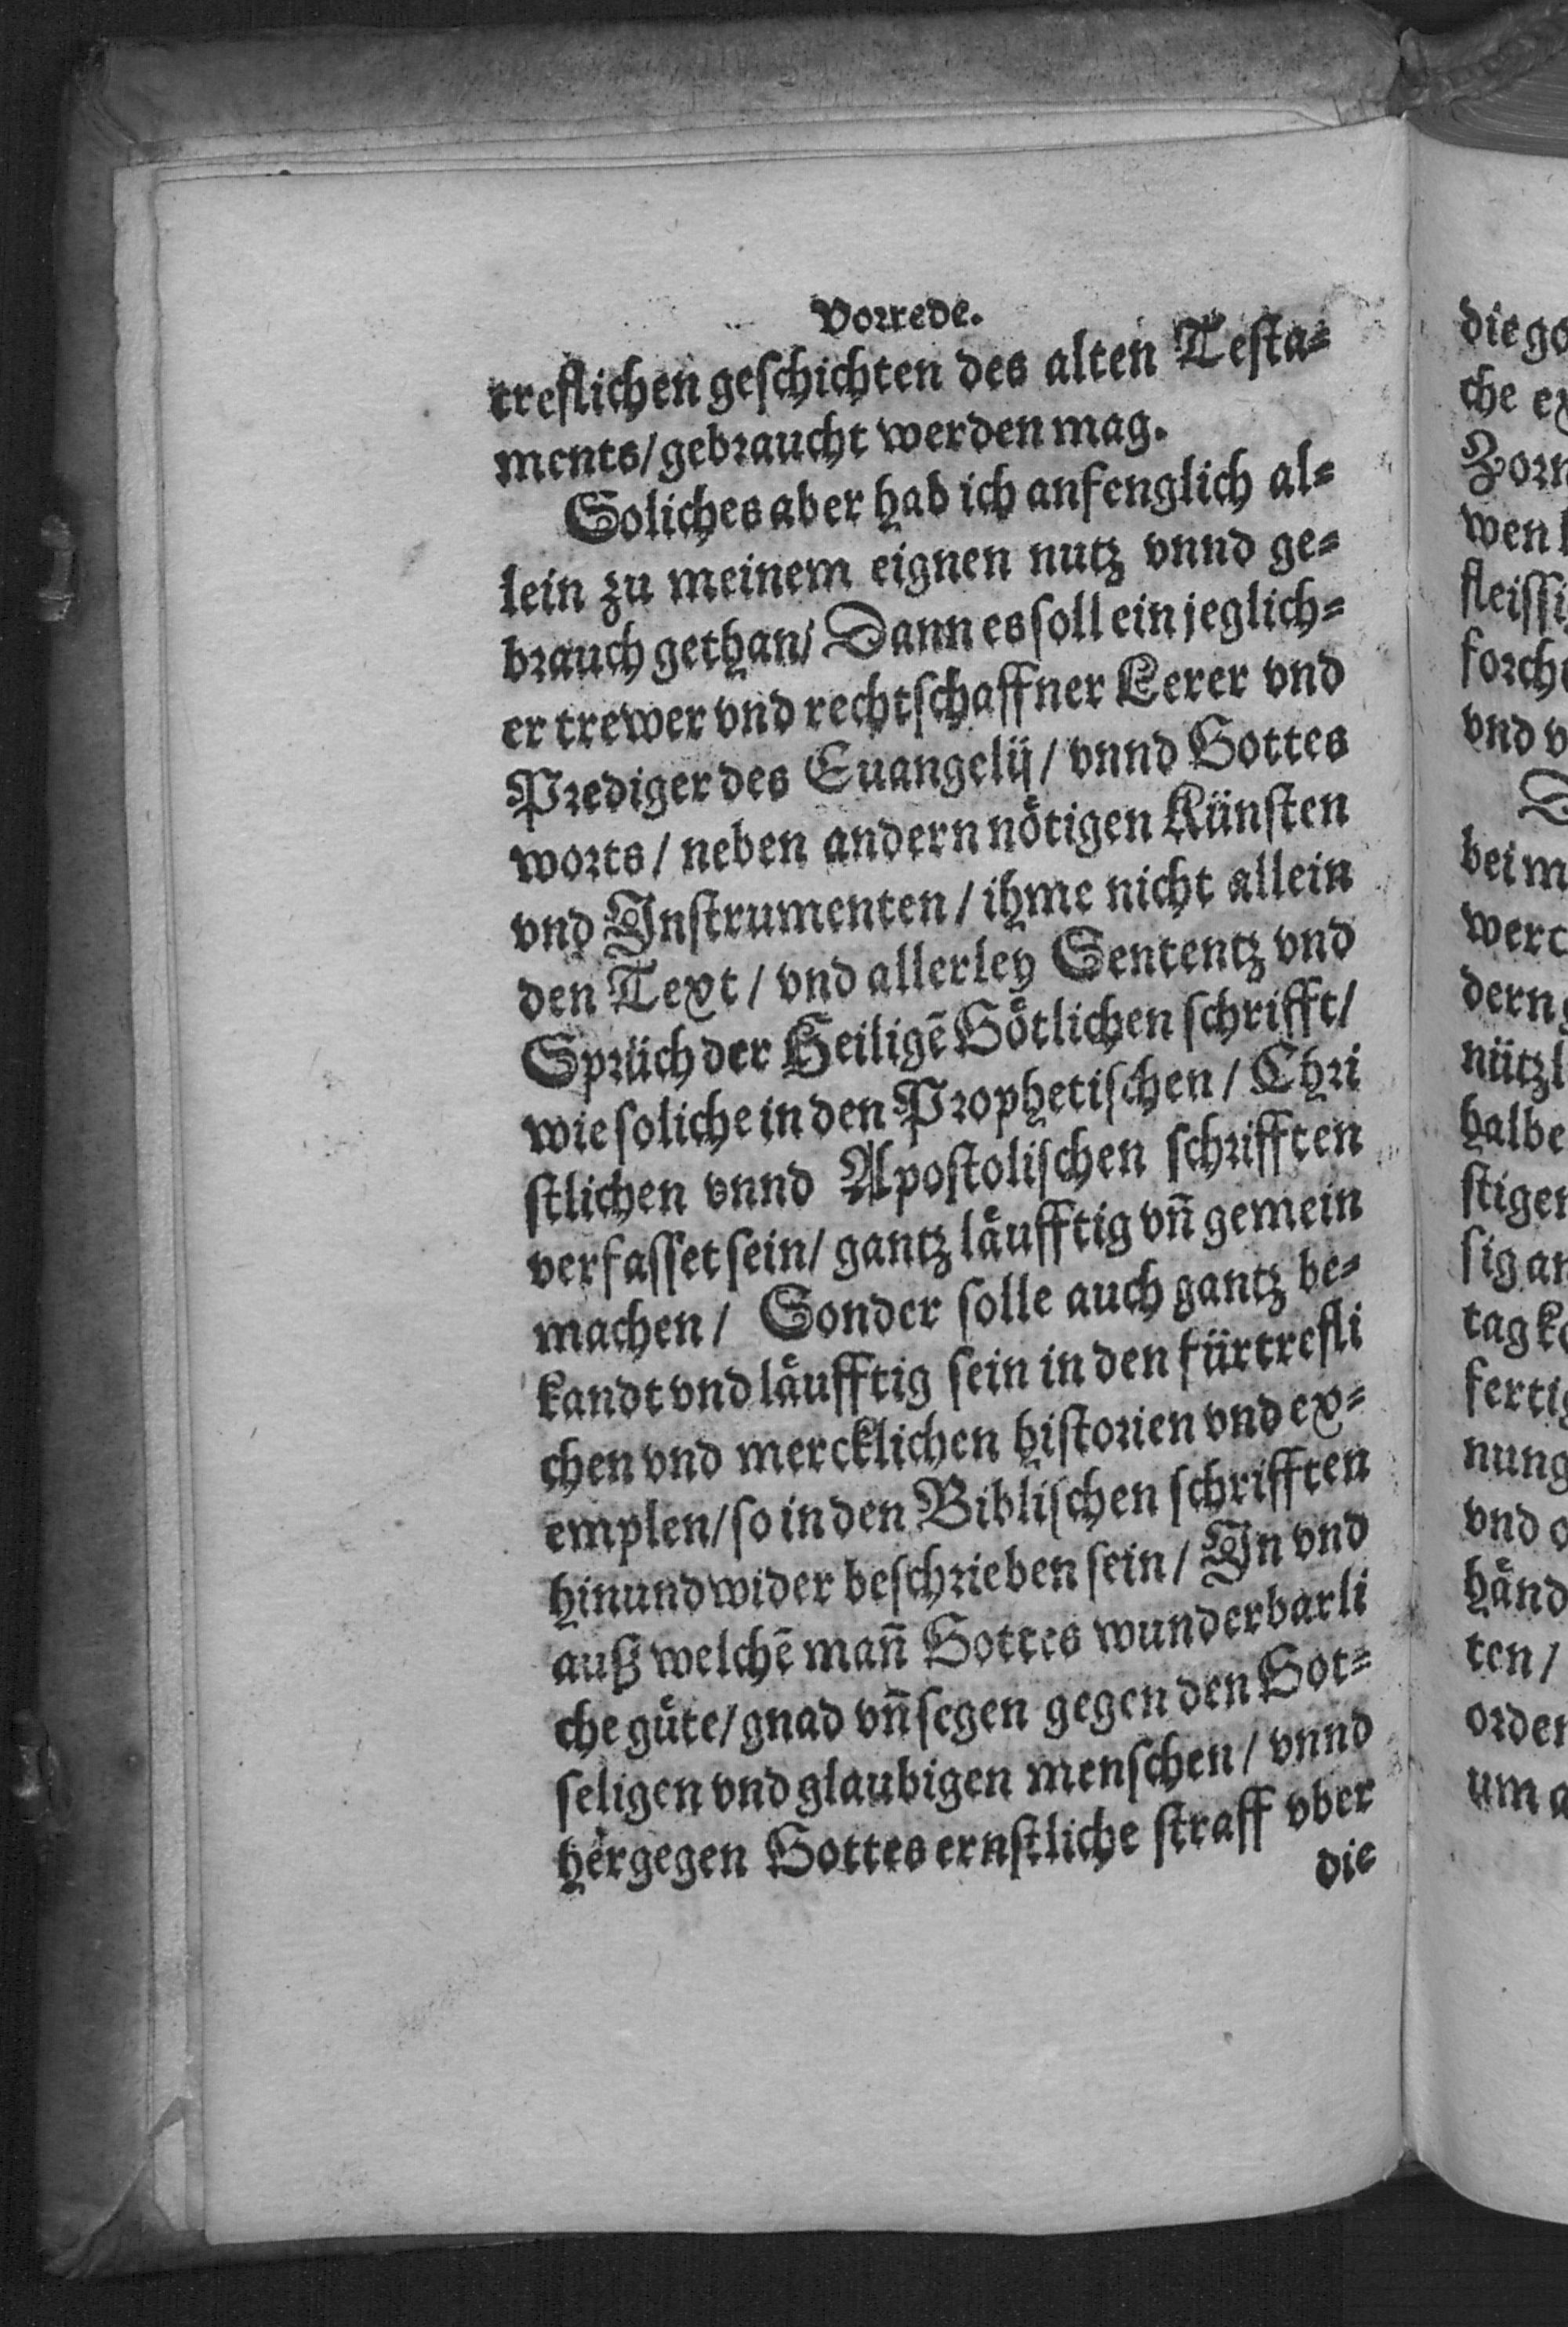 Vorrede.
treflichen geschichten des alten Testa=
ments/ gebraucht werden mag.
Soliches aber hab ich anfenglich al=
lein zu meinem eignen nutz vnnd ge=
brauch gethan/ Dann es soll ein jeglich=
er trewer vnd rechtschaffner Lerer vnd
Prediger des Euangelij/ vnnd Gottes
worts/ neben andern nötigen Künsten
vnd Instrumenten/ ihme nicht allein
den Text/ vnd allerley Sententz vnd
Sprüch der Heiligē Götlichen schrifft/
wie soliche in den Prophetischen/ Chri
stlichen vnnd Apostolischen schrifften
verfasset sein/ gantz läufftig vñ gemein
machen/ Sonder solle auch gantz be=
kandt vnd läufftig sein in den fürtrefli
chen vnd mercklichen historien vnd ex=
emplen/ so in den Biblischen schrifften
hin und wider beschrieben sein/ In vnd
auß welchē mañ Gottes wunderbarli
che güte/ gnad vñ segen gegen den Got=
seligen vnd glaubigen menschen/ vnnd
hergegen Gottes ernstliche straff vber
die
die go
che ex
Zorn
wen
fleissi
forch
vnd v
D
bei m
werc
dern
nützl
halbe
stigen
sig an
tag k
fertig
nung
vnd
händ
ten/
orden
um a